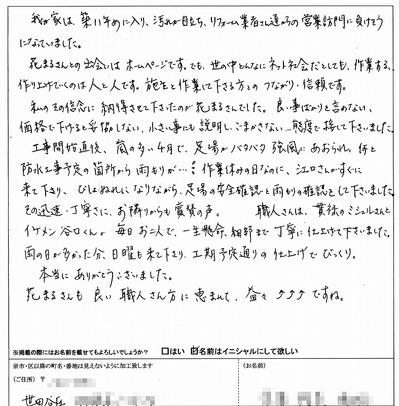 我が家は、築11年めに入り、汚れが目立ち、リフォーム業者さん達からの営業訪問に負けそう
になっていました。
花まるさんとの出会いは ホームページです。でも、世の中どんなにネット社会だとしても、作業する、
作り上げていくのは人と人です。施主と作業して下さる方とのつながり・信頼です。
私のその信念に納得させて下さったのが花まるさんでした。良い事ばかりを言わない、
価格で下げろと妥協しない、小さい事にも説明し、ごまかさない…態度で接して下さいました。
工事開始直後、嵐の多い4月で、足場がバタバタ強風にあおられ、何と
防水工事予定の箇所から雨もりが…! 作業休みの日なのに、江口さんがすぐに
来て下さり、びしょぬれになりながら、足場の安全確認と雨もりの確認をして下さいました。
その迅速・丁寧さに、お隣りからも賞賛の声。 職人さんは、貫禄のミシュルさんと
イケメン谷口くん。毎日お二人で、一生懸命、細部まで丁寧に仕上げて下さいました。
雨の日が多かった分、日曜も来て下さり、工期予定通りの仕上げでびっくり。
本当にありがとうございました。
花まるさんも良い職人さん方に恵まれて、益々↗↗↗ですね。
※掲載の際にはお名前を載せてもよろしいでしょうか? □はい ☑名前はイニシャルにして欲しい
※市・区以降の町名・番地は見えないように加工致します
(ご住所) 〒
(お名前)
世田谷区